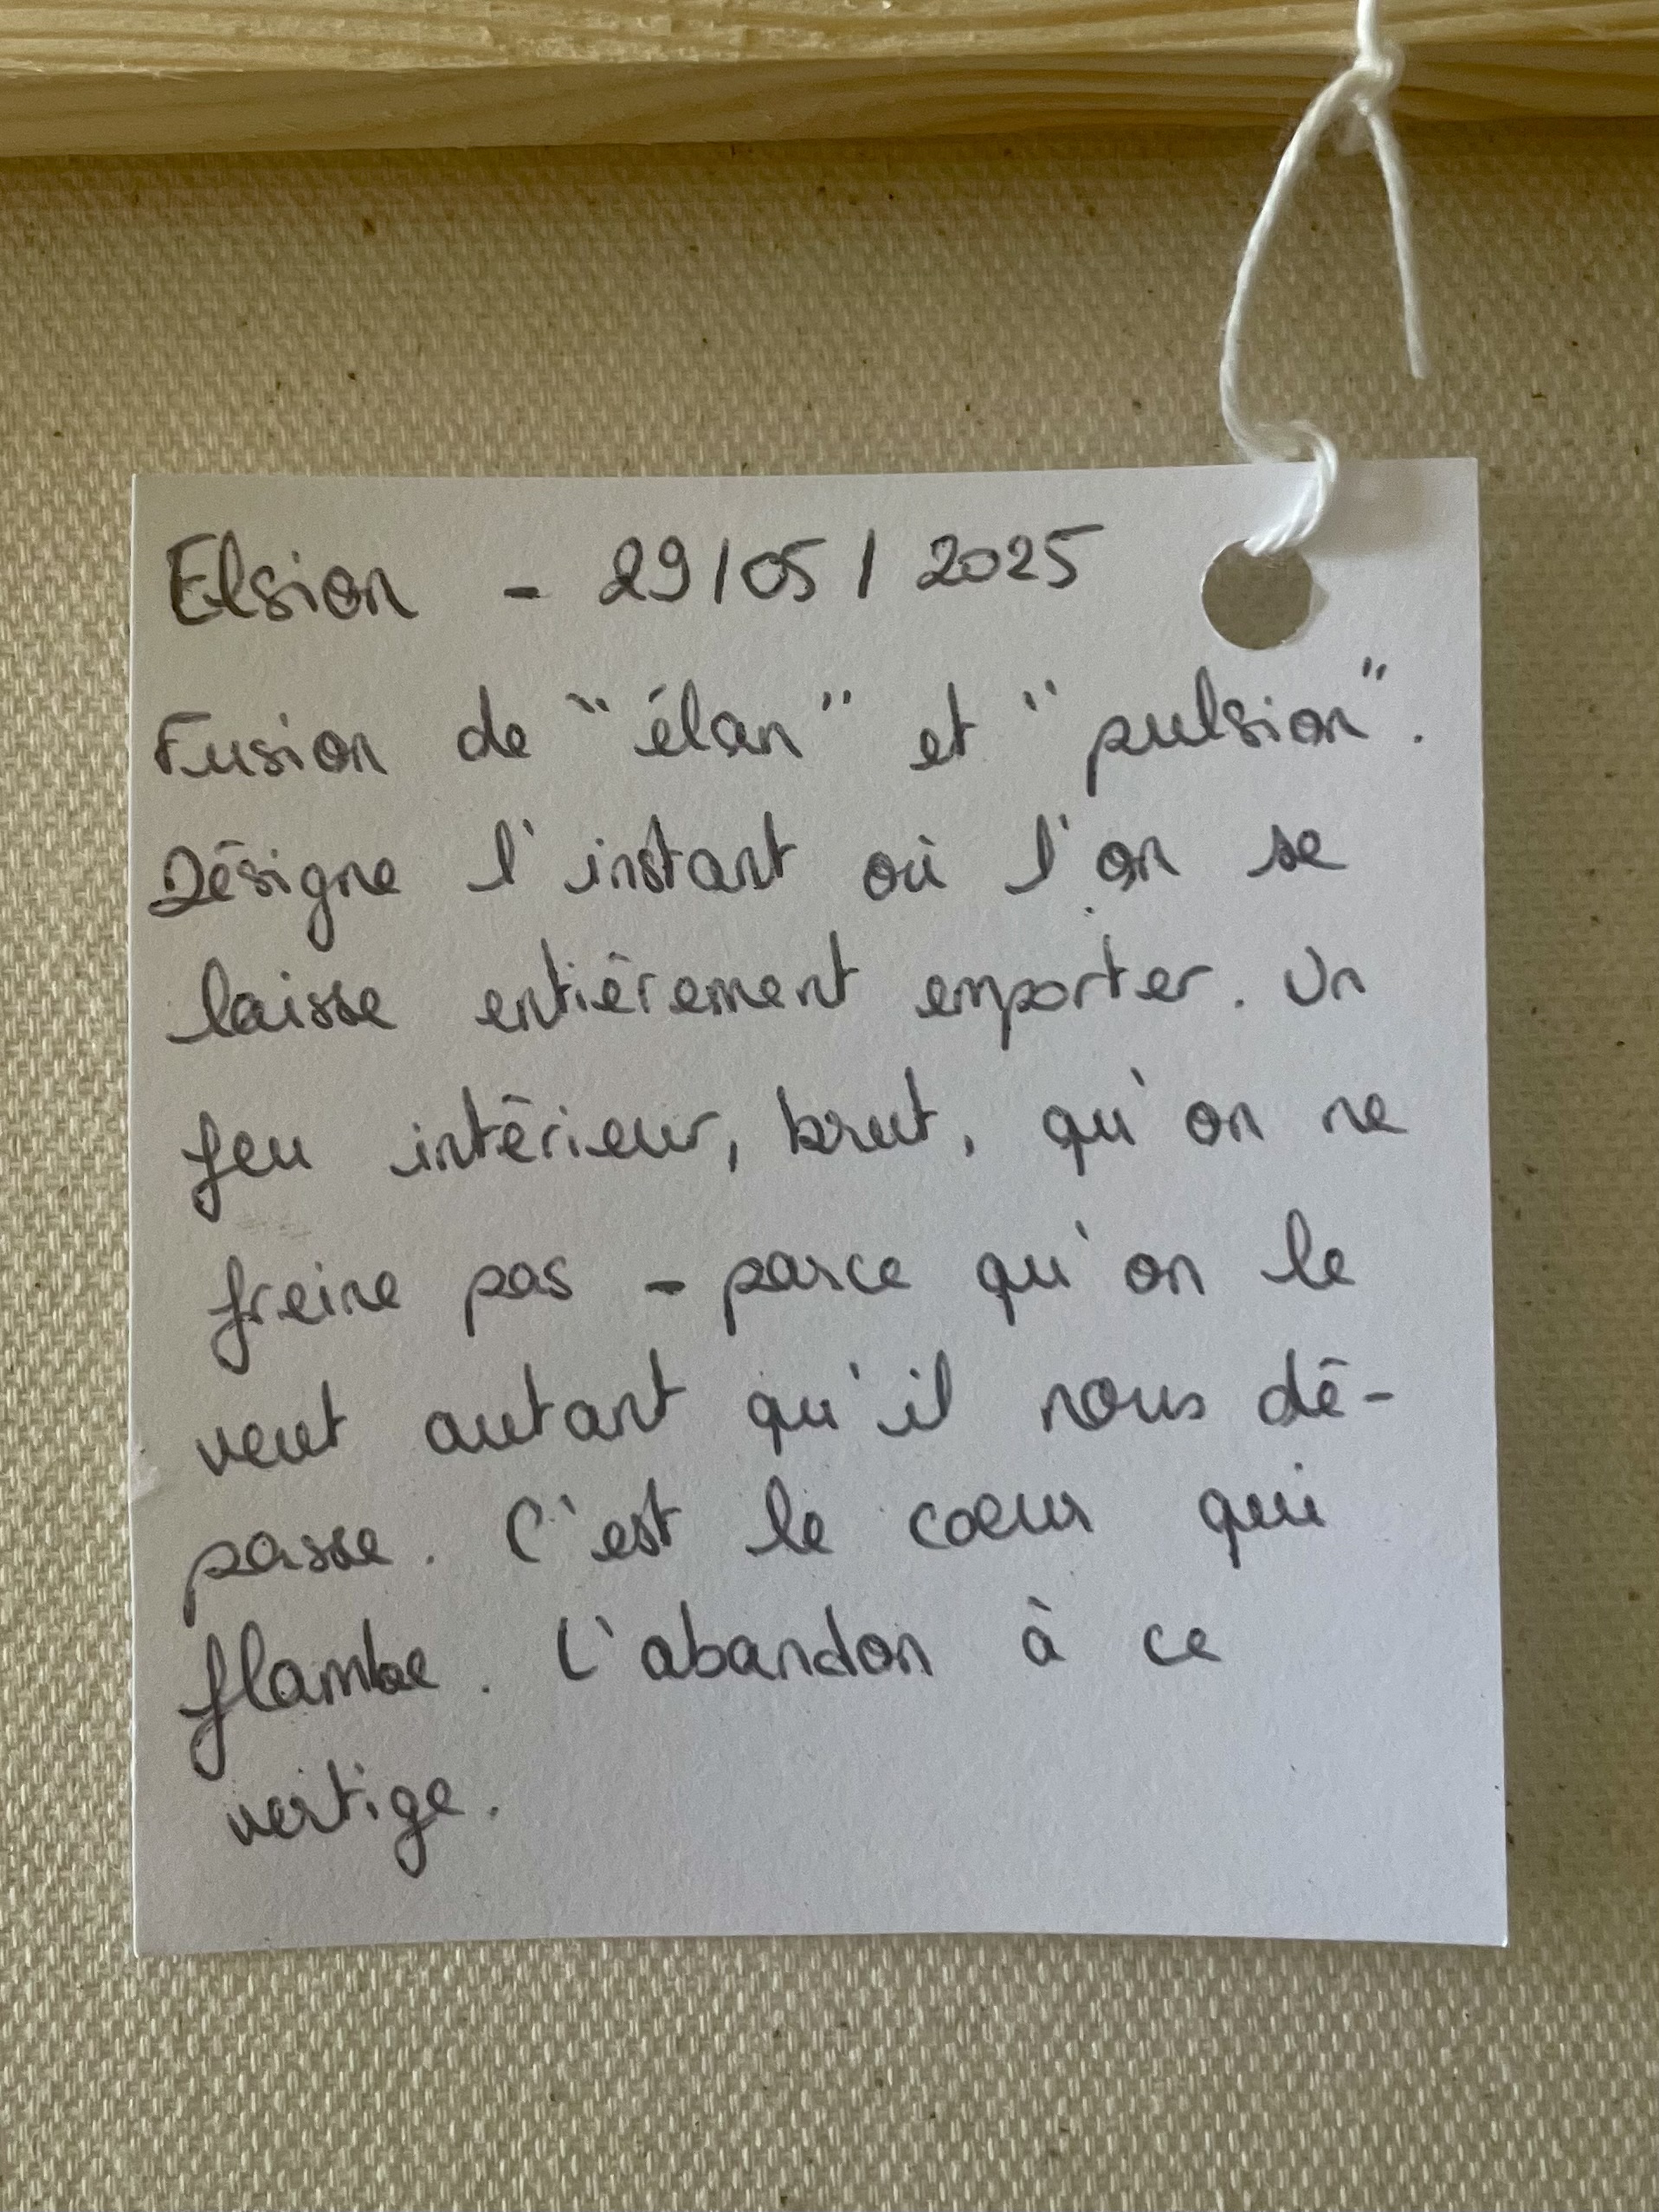 Elsion - 29/05/2025
Fusion de "élan" et "pulsion".
Désigne l'instant où l'on se
laisse entièrement emporter. Un
feu intérieur, brut, qu'on ne
freine pas - parce qu'on le
veut autant qu'il nous dé-
passe. C'est le cœur qui
flambe. L'abandon à ce
vertige.